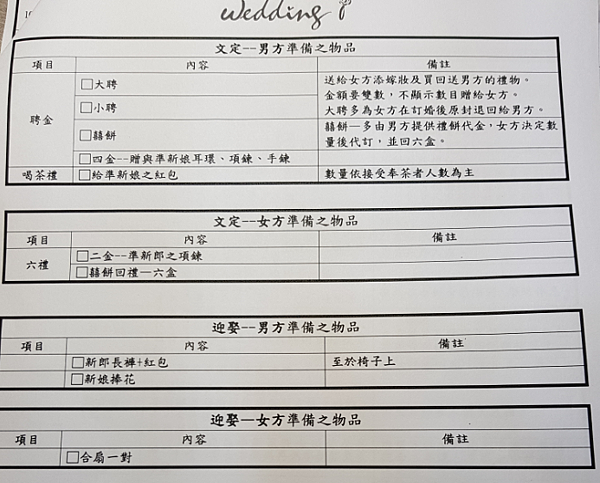 wedding
文定--男方準備之物品
項目 內容 備註
聘金 □大聘 送給女方添嫁妝及買回送男方的禮物。
金額要雙數，不顯示數目贈給女方。
□小聘 大聘多為女方在訂婚後原封退回給男方。
□囍餅 囍餅—多由男方提供禮餅代金，女方決定數
量後代訂，並回六盒。
□四金--贈與準新娘耳環、項鍊、手鍊
喝茶禮 □給準新娘之紅包 數量依接受奉茶者人數為主
文定--女方準備之物品
項目 內容 備註
六禮 □二金--準新郎之項鍊
□囍餅回禮—六盒
迎娶--男方準備之物品
項目 內容 備註
□新郎長褲+紅包 至於椅子上
□新娘捧花
迎娶—女方準備之物品
項目 內容 備註
□合扇一對